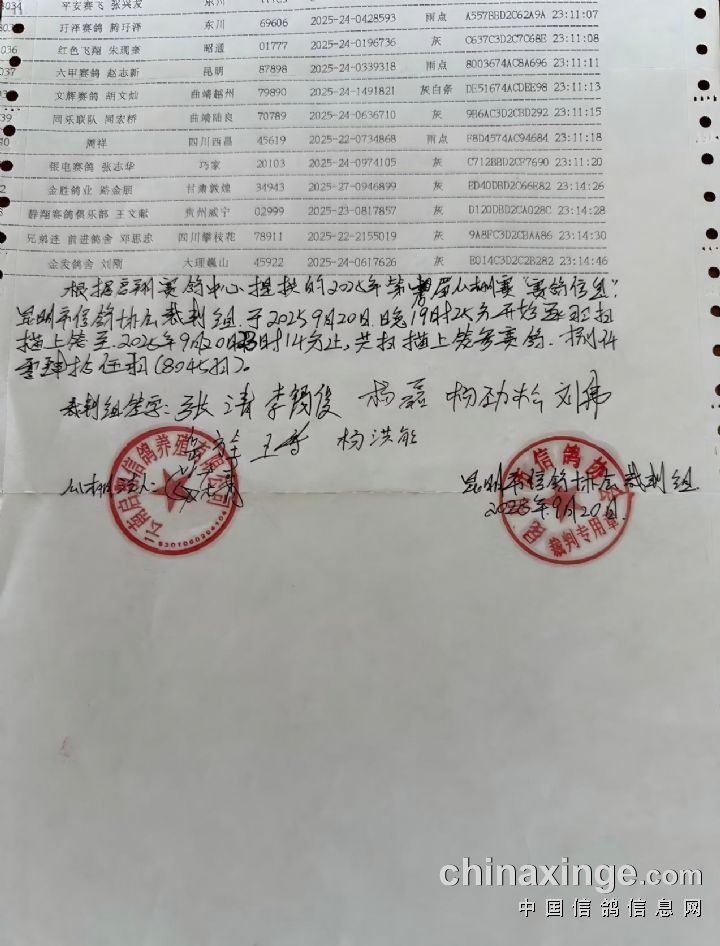 8034 平安赛飞 张兴友 东川 2025-24- A557BBD2C62A9A 23:11:07
玗泽赛鸽 东川 69606 2025-24-0428593 雨点 23:11:07
036 红色飞翔 朱现奎 昭通 01777 2025-24-0196736 灰 C637C3D2C7C68E 23:11:08
037 六甲赛鸽 赵志新 昆明 87898 2025-24-0339318 雨点 8003674AC8A696 23:11:11
文辉赛鸽 胡文灿 曲靖越州 79890 2025-24-1491821 灰白条 DE51674ACDEE98 23:11:13
39 同乐联队 周宏桥 曲靖陆良 70789 2025-24-0636710 灰 9B6AC3D2CBD292 23:11:15
周祥 四川西昌 45619 2025-22-0734868 雨点 F8D4574AC94684 23:11:18
银电赛鸽 张志华 巧家 20103 2025-24-0974105 灰 C712BBD2CF7690 23:11:20
金胜鸽业 金朋 甘肃敦煌 34943 2025-27-0946899 灰 ED40DBD2C66E82 23:14:26
静翔赛鸽俱乐部 王文献 贵州威宁 02999 2025-23-0817857 灰 D120DBD2CA028C 23:14:28
兄弟连 前进鸽舍 邓思志 四川攀枝花 78911 2025-22-2155019 灰 9A8FC3D2CBAA86 23:14:30
金发鸽舍 刘刚 大理巍山 45922 2025-24-0617626 灰 E014C3D2C2B282 23:14:46
根据启翔赛鸽中心提供的2025年第 届公棚赛"赛鸽信息",
昆明市信鸽协会裁判组于2025年9月20日晚19时25分开始逐羽扫
描上笼至2025年9月20日23时14分止,共扫描上笼参赛鸽 捌仟
零肆拾伍羽(8045羽)。
裁判组签字:张清 李锡俊 杨磊 杨劲松 刘伟
王 杨洪能
公棚法人:
昆明市信鸽协会裁判组
2025年9月20日
云南启 信鸽养殖有限公司
裁判专用章
chinaxinge.com
中国信鸽信息网